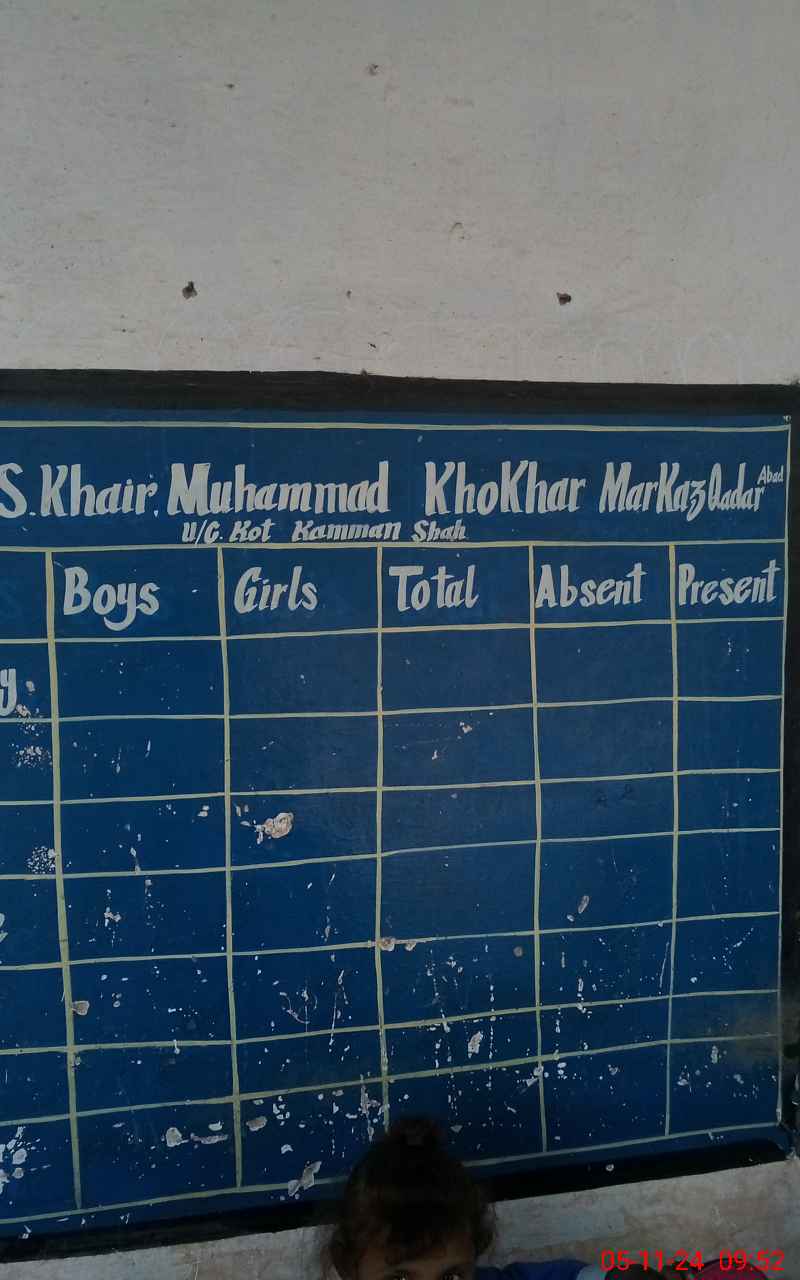 S. Khair. Muhammad KhoKhar MarKaz Qadar Abad
U/C. Kot Kamman Shah
Boys Girls Total Absent Present
y
05-11-24 09:52